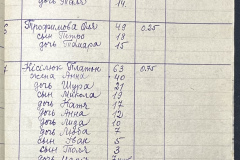 дочь Галя 14
6 Трофимова Оля 49 0.25
сын Петро 18
дочь Тамара 15
7 Кіселюк Платон 63 0.75
жена Анна 40
дочь Шура 21
сын Микола 19
дочь Натя 17
дочь Анна 12
дочь Лида 10
дочь Люба 7
сын Іван 5
сын Толя 3
дочь